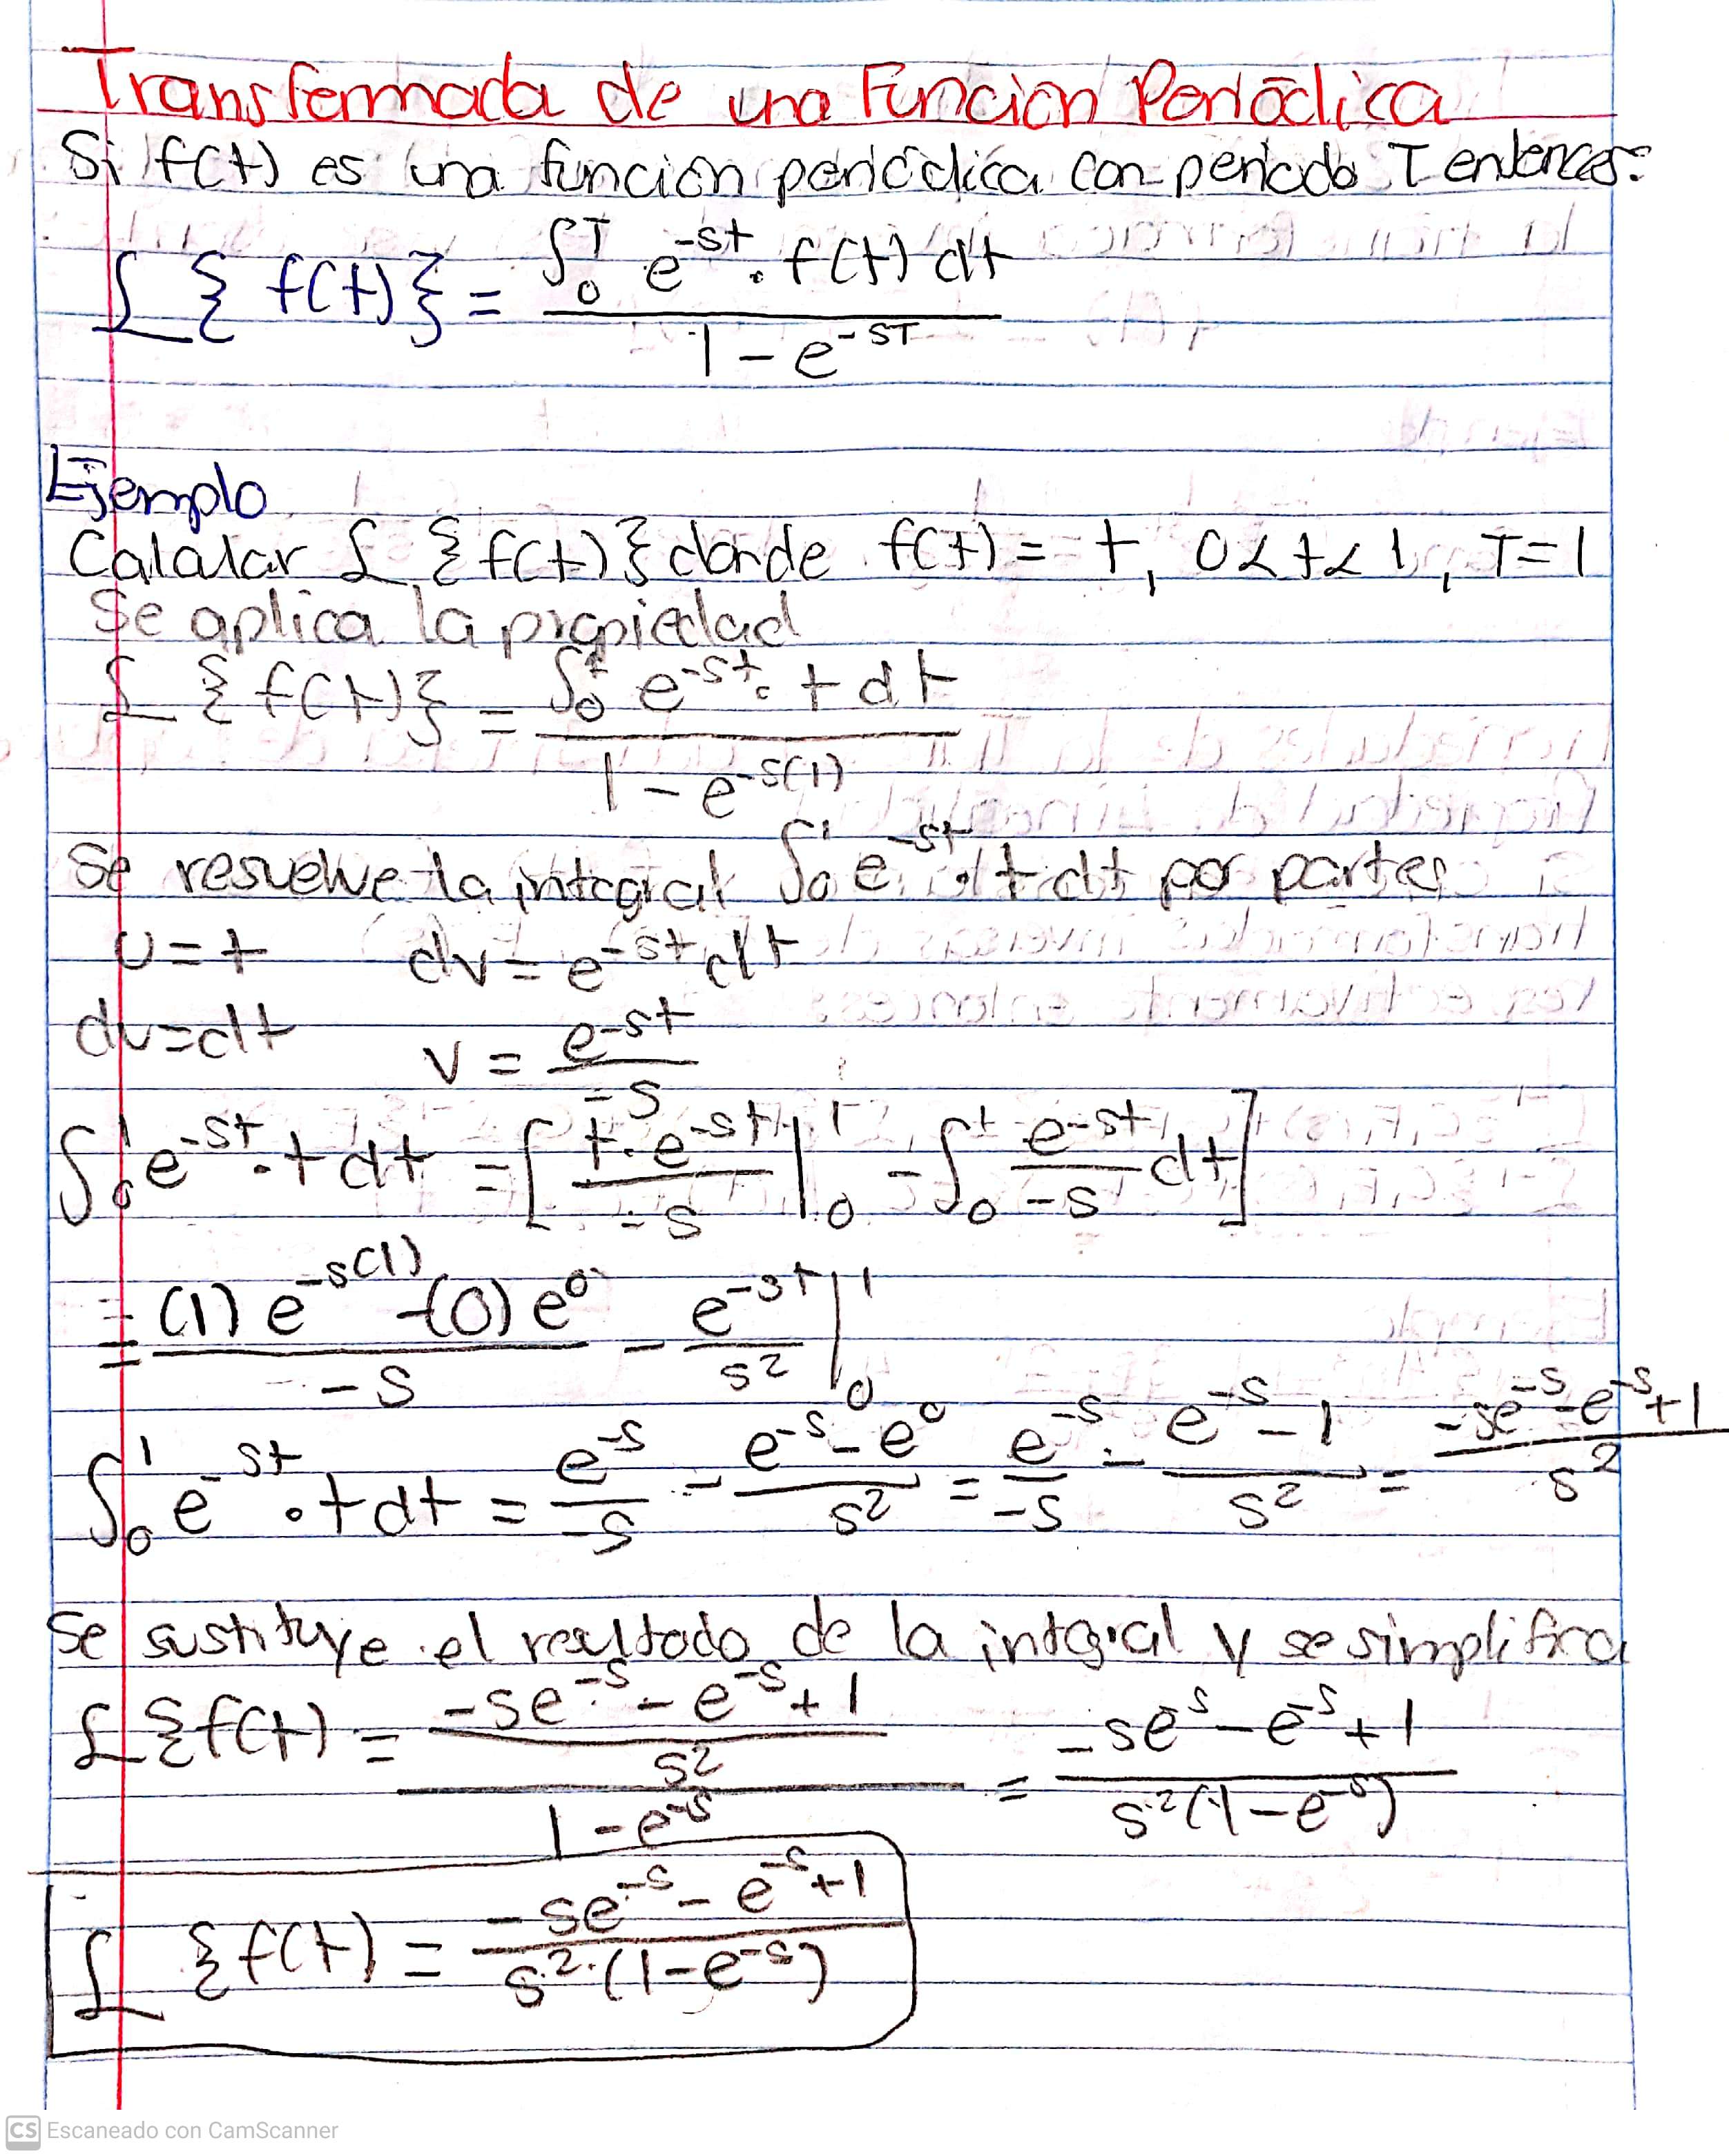 Transformada de una Función Periódica
Si f(t) es una función periódica con periodo T entonces:
£ { f(t) } = ∫₀ᵀ e^-st · f(t) dt / 1 - e^-sT
Ejemplo
Calcular £ { f(t) } donde f(t) = t, 0 < t < 1, T = 1
Se aplica la propiedad
£ { f(t) } = ∫₀¹ e^-st · t dt / 1 - e^-s(1)
Se resuelve la integral ∫₀¹ e^-st · t dt por partes
u = t dv = e^-st dt
du = dt v = e^-st / -s
∫₀¹ e^-st · t dt = [ t · e^-st / -s |₀¹ - ∫₀¹ e^-st / -s dt ]
= (1) e^-s(1) - (0) e^0 / -s - e^-st / s² |₀¹
∫₀¹ e^-st · t dt = e^-s / -s - e^-s - e^0 / s² = e^-s / -s - e^-s - 1 / s² = -se^-s - e^-s + 1 / s²
Se sustituye el resultado de la integral y se simplifica
£ { f(t) = -se^-s - e^-s + 1 / s² / 1 - e^-s = -se^s - e^-s + 1 / s² (1 - e^-s)
£ { f(t) = -se^-s - e^-s + 1 / s² · (1 - e^-s)
CS Escaneado con CamScanner